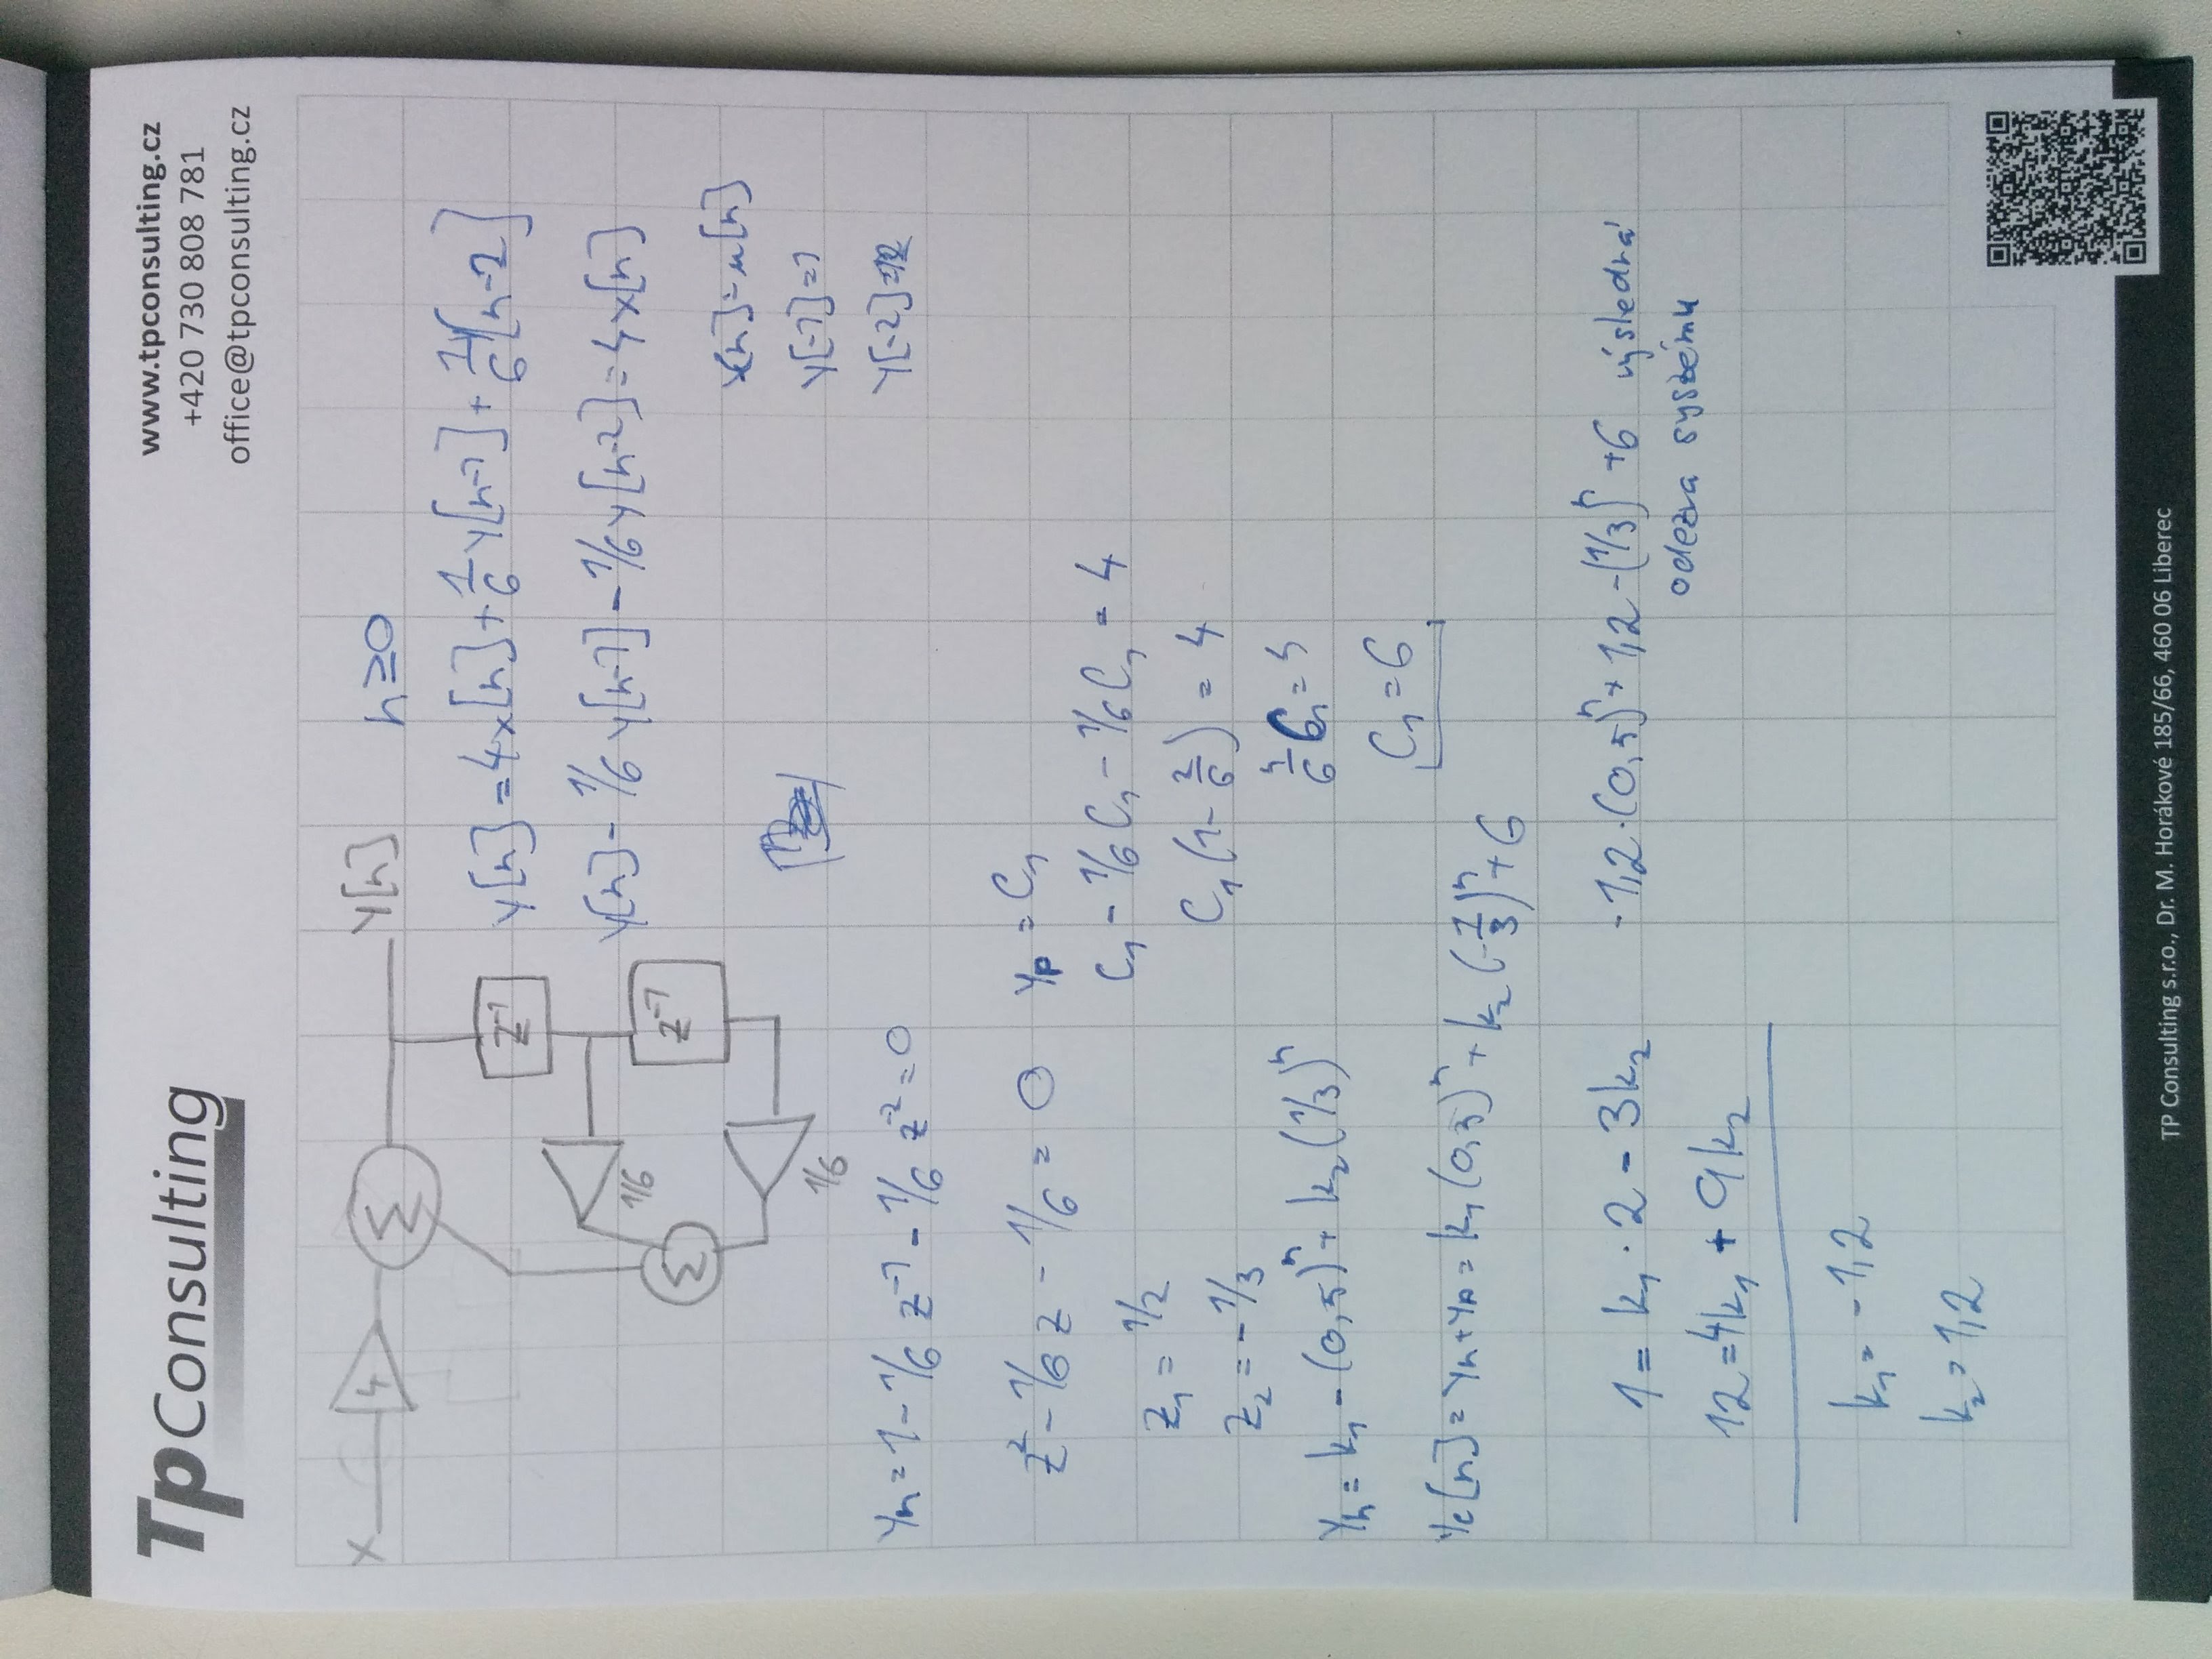 TpConsulting
www.tpconsulting.cz
+420 730 808 781
office@tpconsulting.cz
x
4
Σ
y[n]
n≥0
z⁻¹
1/6
z⁻¹
1/6
Σ
y[n]=4x[n]+1/6y[n-1]+1/6y[n-2]
y[n]-1/6y[n-1]-1/6y[n-2]=4x[n]
x[n]=u[n]
y[-1]=1
y[-2]=12
yn=1-1/6z⁻¹-1/6z⁻²=0
z²-1/6z-1/6=0
z₁=1/2
z₂=-1/3
yp=C₁
C₁-1/6C₁-1/6C₁=4
C₁(1-2/6)=4
4/6C₁=4
C₁=6
yh=k₁-(0,5)ⁿ+k₂(1/3)ⁿ
yc[n]=yn+yp=k₁(0,5)ⁿ+k₂(-1/3)ⁿ+6
1=k₁·2-3k₂
12=4k₁+9k₂
k₁=-1,2
k₂=1,2
-1,2·(0,5)ⁿ+1,2-(1/3)ⁿ+6 výsledná
odezva systému
TP Consulting s.r.o., Dr. M. Horákové 185/66, 460 06 Liberec